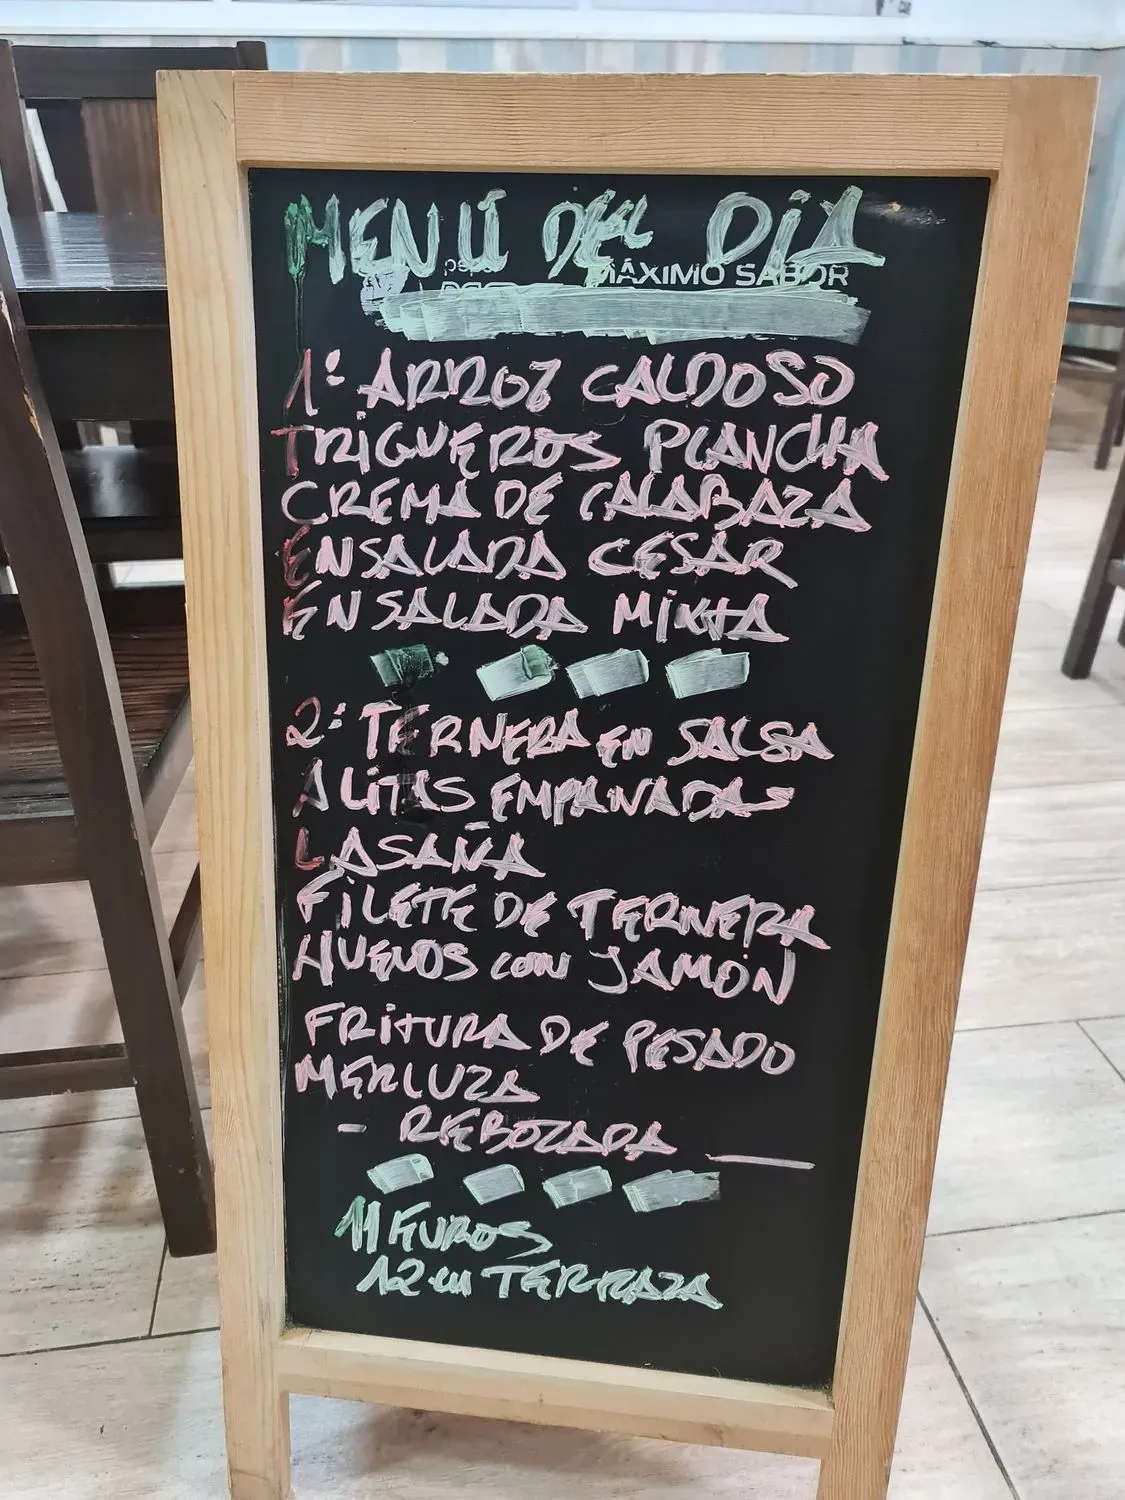 MENÚ DEL DÍA
MÁXIMO SABOR
1º ARROZ CALDOSO
TRIGUEROS PLANCHA
CREMA DE CALABAZA
ENSALADA CESAR
ENSALADA MIXTA
2º TERNERA EN SALSA
ALITAS EMPANADAS
LASAÑA
FILETE DE TERNERA
HUEVOS CON JAMÓN
FRITURA DE PESADO
MERLUZA
- REBOZADA
11 EUROS
12 en TERRAZA